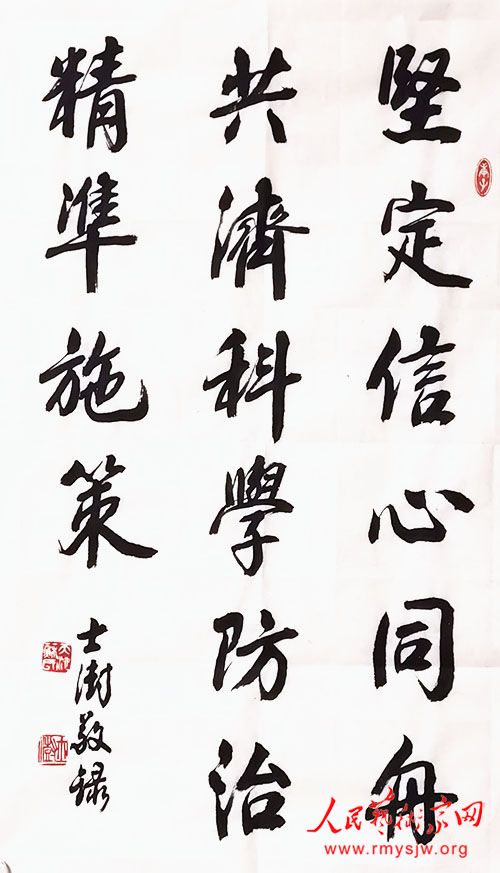 堅定信心同舟
庚子
共濟科學防治
精準施策
士澍敬録
人民藝術家网
www.rmysjw.org